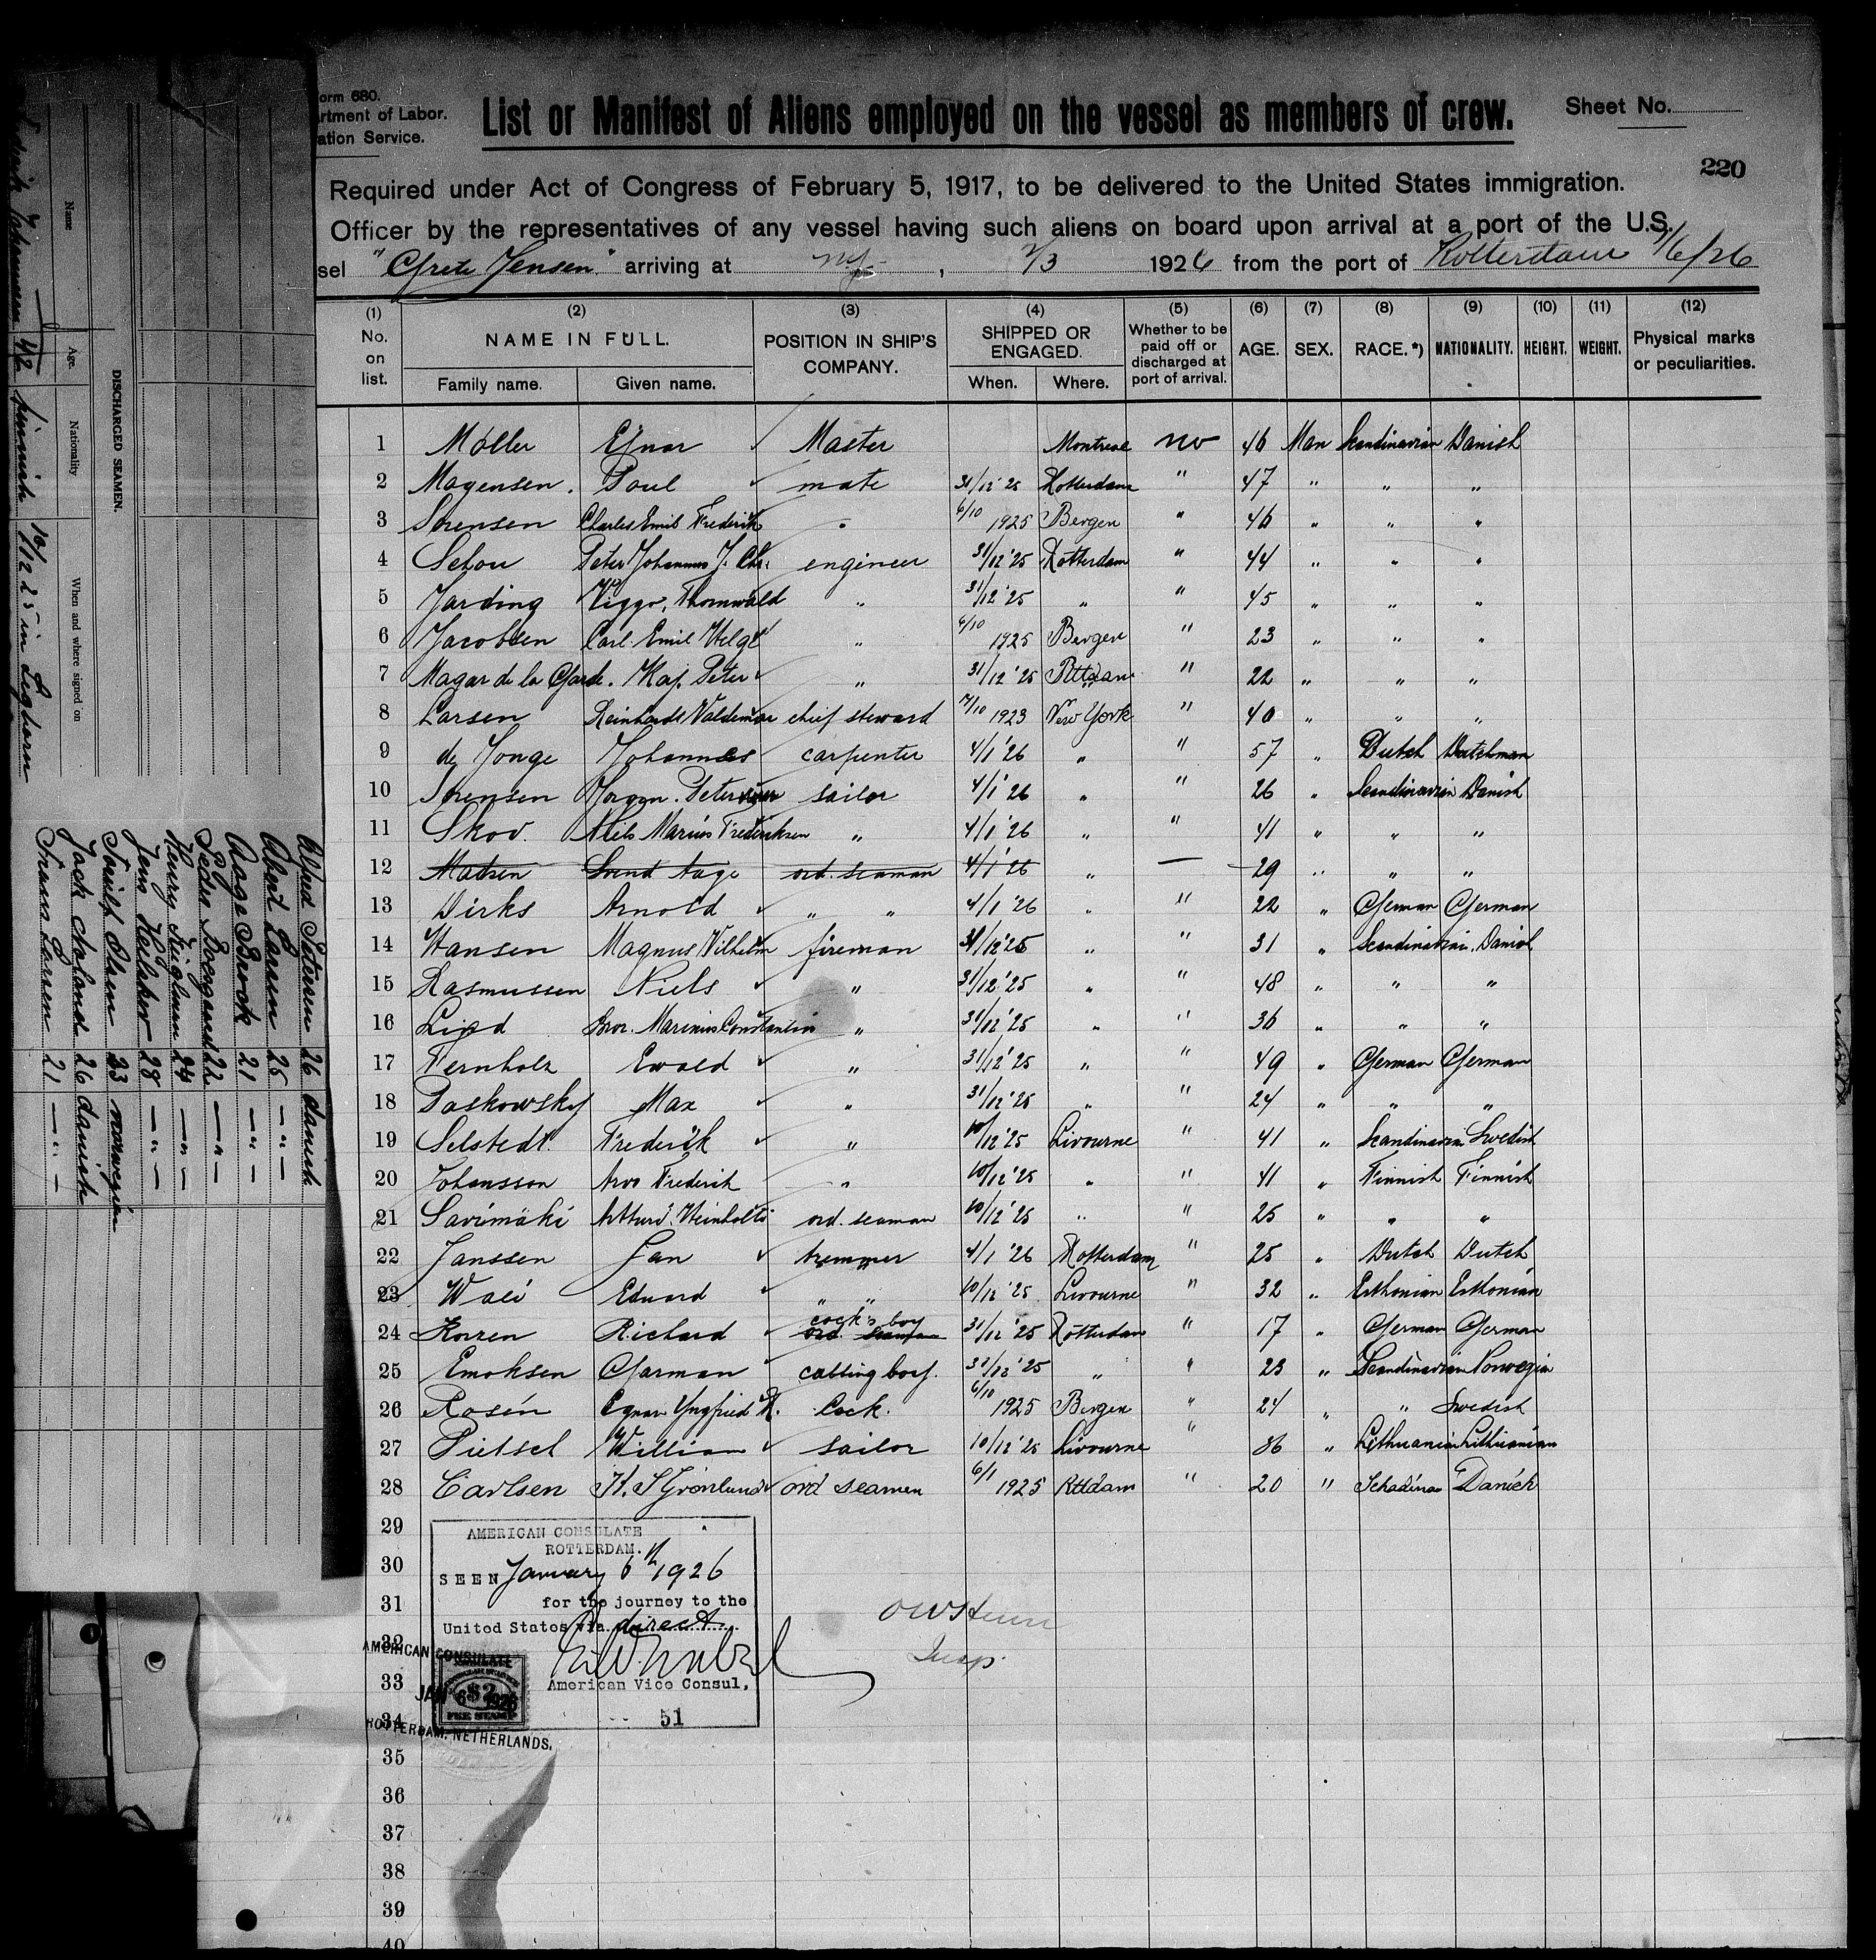 orm 680.
rtment of Labor.
ation Service.
List or Manifest of Aliens employed on the vessel as members of crew.
Sheet No.
220
Required under Act of Congress of February 5, 1917, to be delivered to the United States immigration.
Officer by the representatives of any vessel having such aliens on board upon arrival at a port of the U.S.
sel "Grete Jensen" arriving at , 1926 from the port of Rotterdam 1/6/26
(1) (2) (3) (4) (5) (6) (7) (8) (9) (10) (11) (12)
No. on list. NAME IN FULL. Family name. Given name. POSITION IN SHIP'S COMPANY. SHIPPED OR ENGAGED. When. Where. Whether to be paid off or discharged at port of arrival. AGE. SEX. RACE. *) NATIONALITY. HEIGHT. WEIGHT. Physical marks or peculiarities.
1 Møller Ejnar Master Montreal no 46 Man Scandinavian Danish
2 Mogensen Poul mate 31/12 '25 Rotterdam " 47 " " "
3 Sørensen Charles Emil Frederik " 6/10 1925 Bergen " 46 " " "
4 Schou Peter Johannes J. Chr. engineer 31/12 '25 Rotterdam " 44 " " "
5 Jarding Viggo, Thornwald " 31/12 '25 " " 45 " " "
6 Jacobsen Carl Emil Helge " 6/10 1925 Bergen " 23 " " "
7 Magar de la Garde. Kaj. Peter " 31/12 '25 Rttdam " 22 " " "
8 Larsen Reinhardt Valdemar chief steward 7/10 1923 New York " 40 " " "
9 de Jonge Johannes carpenter 4/1 '26 " " 57 " Dutch Dutchman
10 Sørensen Jørgen. sailor 4/1 '26 " " 26 " Scandinavian Danish
11 Skov. Niels Marius Frederiksen " 4/1 '26 " " 41 " " "
12 Matzen Svend Aage ord. seaman 4/1 '26 " — 29 " " "
13 Dirks Arnold " " 4/1 '26 " " 22 " German German
14 Hansen Magnus Vilhelm fireman 31/12 '25 " " 31 " Scandinavian. Danish
15 Rasmussen Niels " 31/12 '25 " " 48 " " "
16 Lind Marinus Constantin " 31/12 '25 " " 36 " " "
17 Fernholz Ewald " 31/12 '25 " " 49 " German German
18 Paskowsky Max " 31/12 '25 " " 24 " " "
19 Selstedt. Frederik " 10/12 '25 Livourne " 41 " Scandinavian Swedish
20 Johansson Arvo Frederik " 10/12 '25 " " 41 " Finnish Finnish
21 Savimäki ord. seaman 10/12 '25 " " 25 " " "
22 Janssen Jan tremmer 4/1 '26 Rotterdam " 25 " Dutch Dutch
23 Wali Eduard " " 10/12 '25 Livourne " 32 " Esthonian Esthonian
24 Korren Richard cock's boy ord. seaman 31/12 '25 Rotterdam " 17 " German German
25 Emoksen Garman cabbing boy. 31/12 '25 " " 23 " Scandinavian Norwegian
26 Rosén Egnar Yngfried R. Cock. 6/10 1925 Bergen " 24 " " Swedish
27 Pietsch William sailor 10/12 '25 Livourne " 36 " Lithuanian Lithuanian
28 Carlsen H. S Grønlund ord seamen 6/1 1925 Rttdam " 20 " Danich
29
30
31
32
33
34
35
36
37
38
39
40
AMERICAN CONSULATE
ROTTERDAM.
SEEN January 6th 1926
for the journey to the
United States via direct
American Vice Consul,
51
AMERICAN CONSULATE
JAN 6 1926
ROTTERDAM, NETHERLANDS.
$2
FEE STAMP
Insp.
DISCHARGED SEAMEN.
Name Age. Nationality When and where signed on
Johansen 42 finnish 10/12 25 in Leghorn
Alfred Petersen 26 danish
Albert Larsen 25 — " —
Aage Brock 21 — " —
Peder Boegaard 22 — " —
Henry 24 — " —
Jens 28 — " —
Olsen 33 norwegian
Jack 26 danish
Larsen 21 — " —